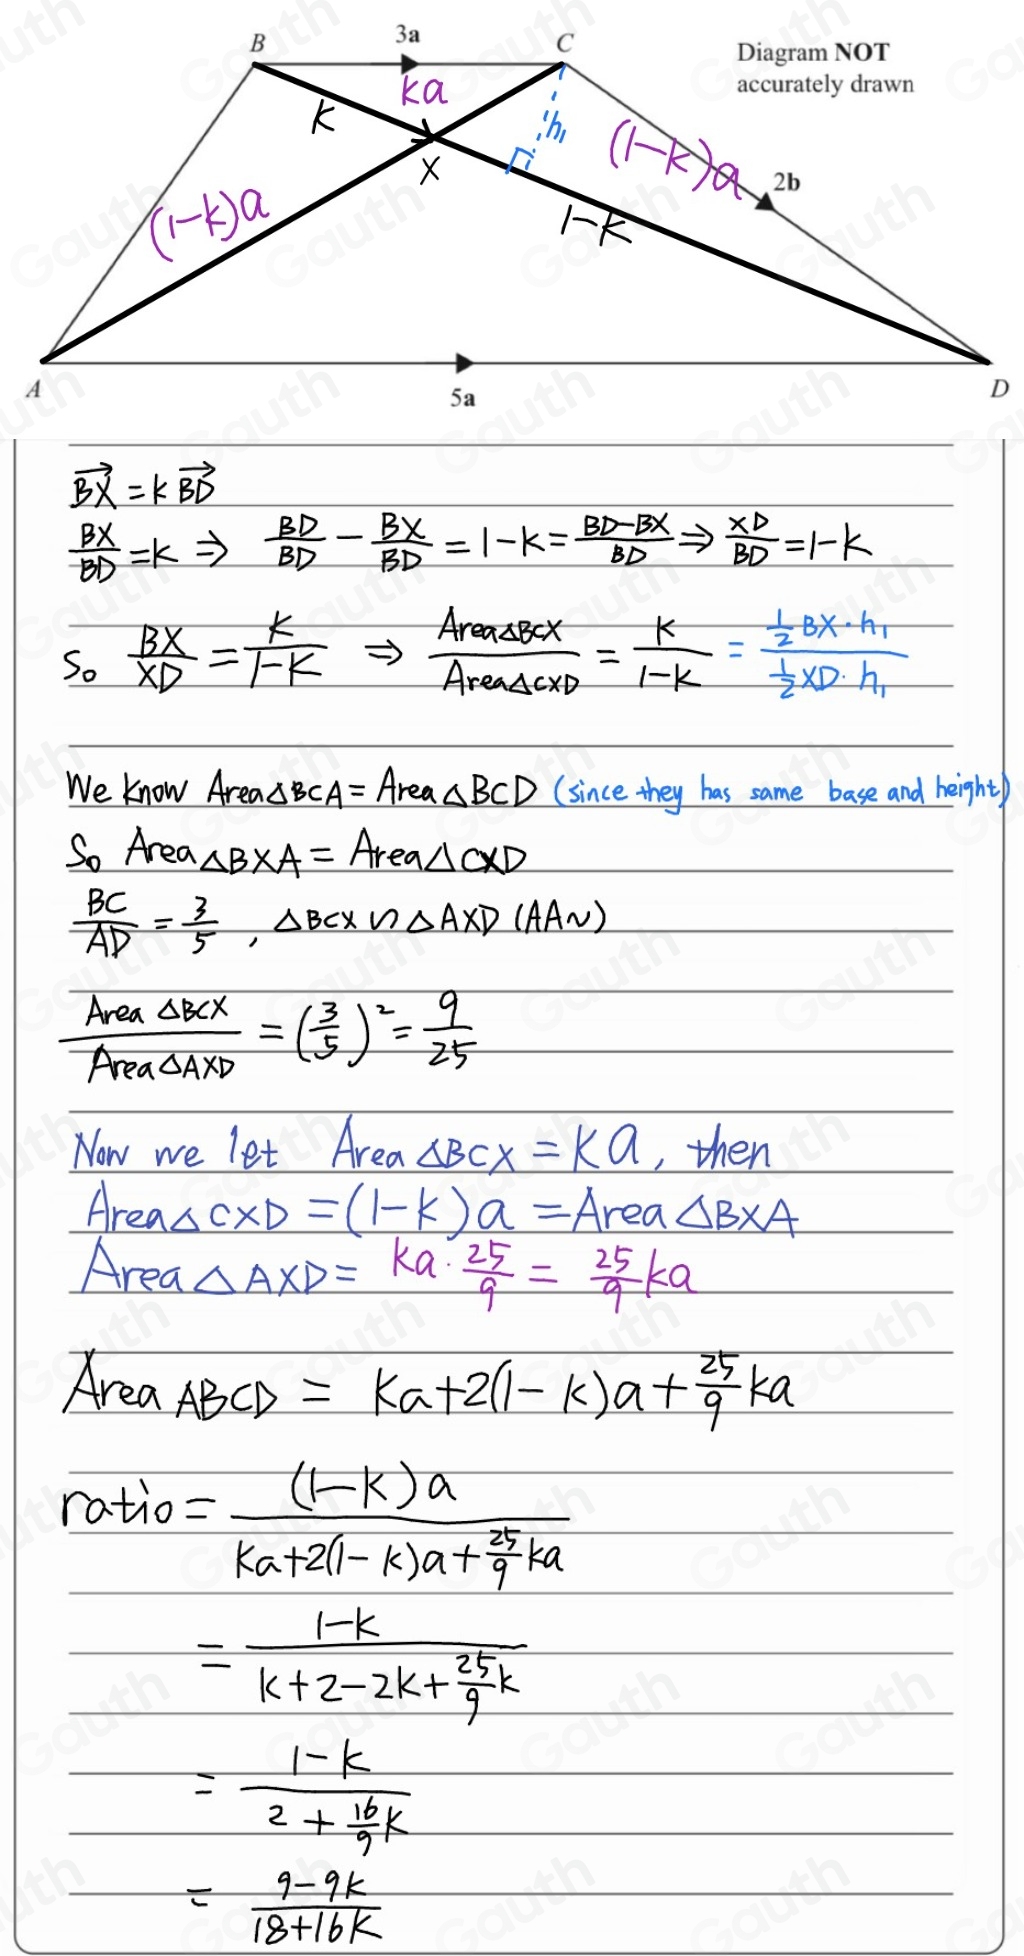 B 3a C
Diagram NOT
accurately drawn
ka
k
h₁
(1-k)a
X
2b
(1-k)a
1-k
A
5a
D
→BX = k →BD
BX/BD = k ⇒ BD/BD - BX/BD = 1-k = BD-BX/BD ⇒ XD/BD = 1-k
So BX/XD = k/1-k ⇒ Area△BCX/Area△CXD = k/1-k = ½BX·h₁/½XD·h₁
We know Area△BCA = Area△BCD (since they has same base and height)
So Area△BXA = Area△CXD
BC/AD = 3/5 , △BCX ∽ △AXD (AA~)
Area △BCX/Area△AXD = (3/5)² = 9/25
Now we let Area△BCX = ka, then
Area△CXD = (1-k)a = Area△BXA
Area△AXD = ka·25/9 = 25/9 ka
Area ABCD = ka+2(1-k)a+25/9 ka
ratio = (1-k)a/ka+2(1-k)a+25/9 ka
= 1-k/k+2-2k+25/9 k
= 1-k/2+16/9 k
= 9-9k/18+16k
Gauth